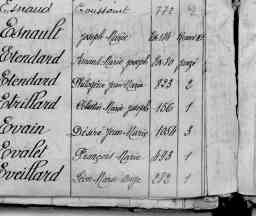 Esnaud Toussaint 772 2
Esnault Joseph Marie
Etendard Amant Marie Joseph
Etendard Philogène Jean Marie 823 2
Etrillard Célestin Marie Joseph 156 1
Evain Désiré Jean Marie 1054 3
Evalet François Marie 493 1
Eveillard Léon Marie Ange 272 1